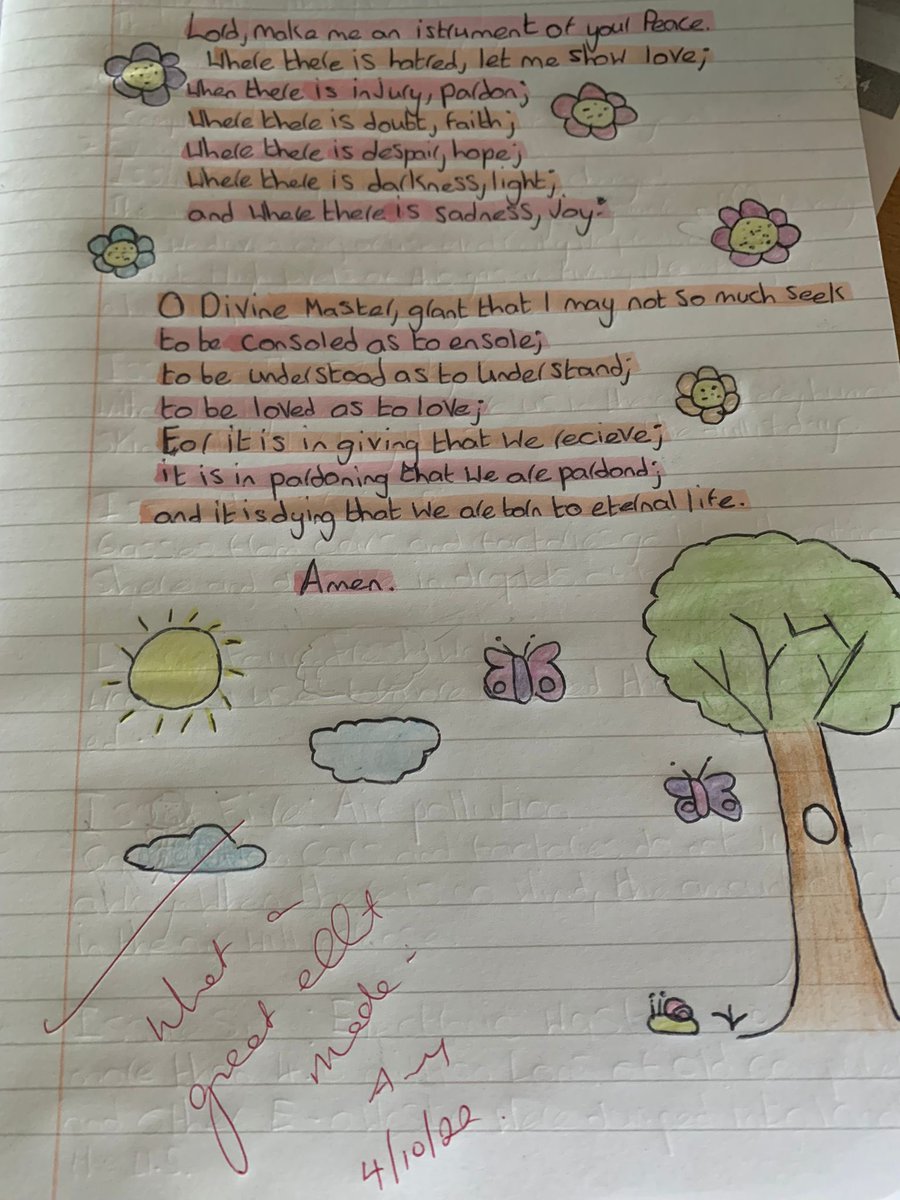 Lord, make me an istrument of your Peace.
Where there is hatred, let me show love;
When there is injury, pardon;
Where there is doubt, faith;
Where there is despair, hope;
Where there is darkness, light;
and Where there is sadness, Joy.
O Divine Master, grant that I may not so much seek
to be consoled as to ensole;
to be understood as to understand;
to be loved as to love;
For it is in giving that we recieve;
it is in pardoning that we are pardond;
and it is dying that we are born to eternal life.
Amen.
What a
great effort
made.
4/10/22.